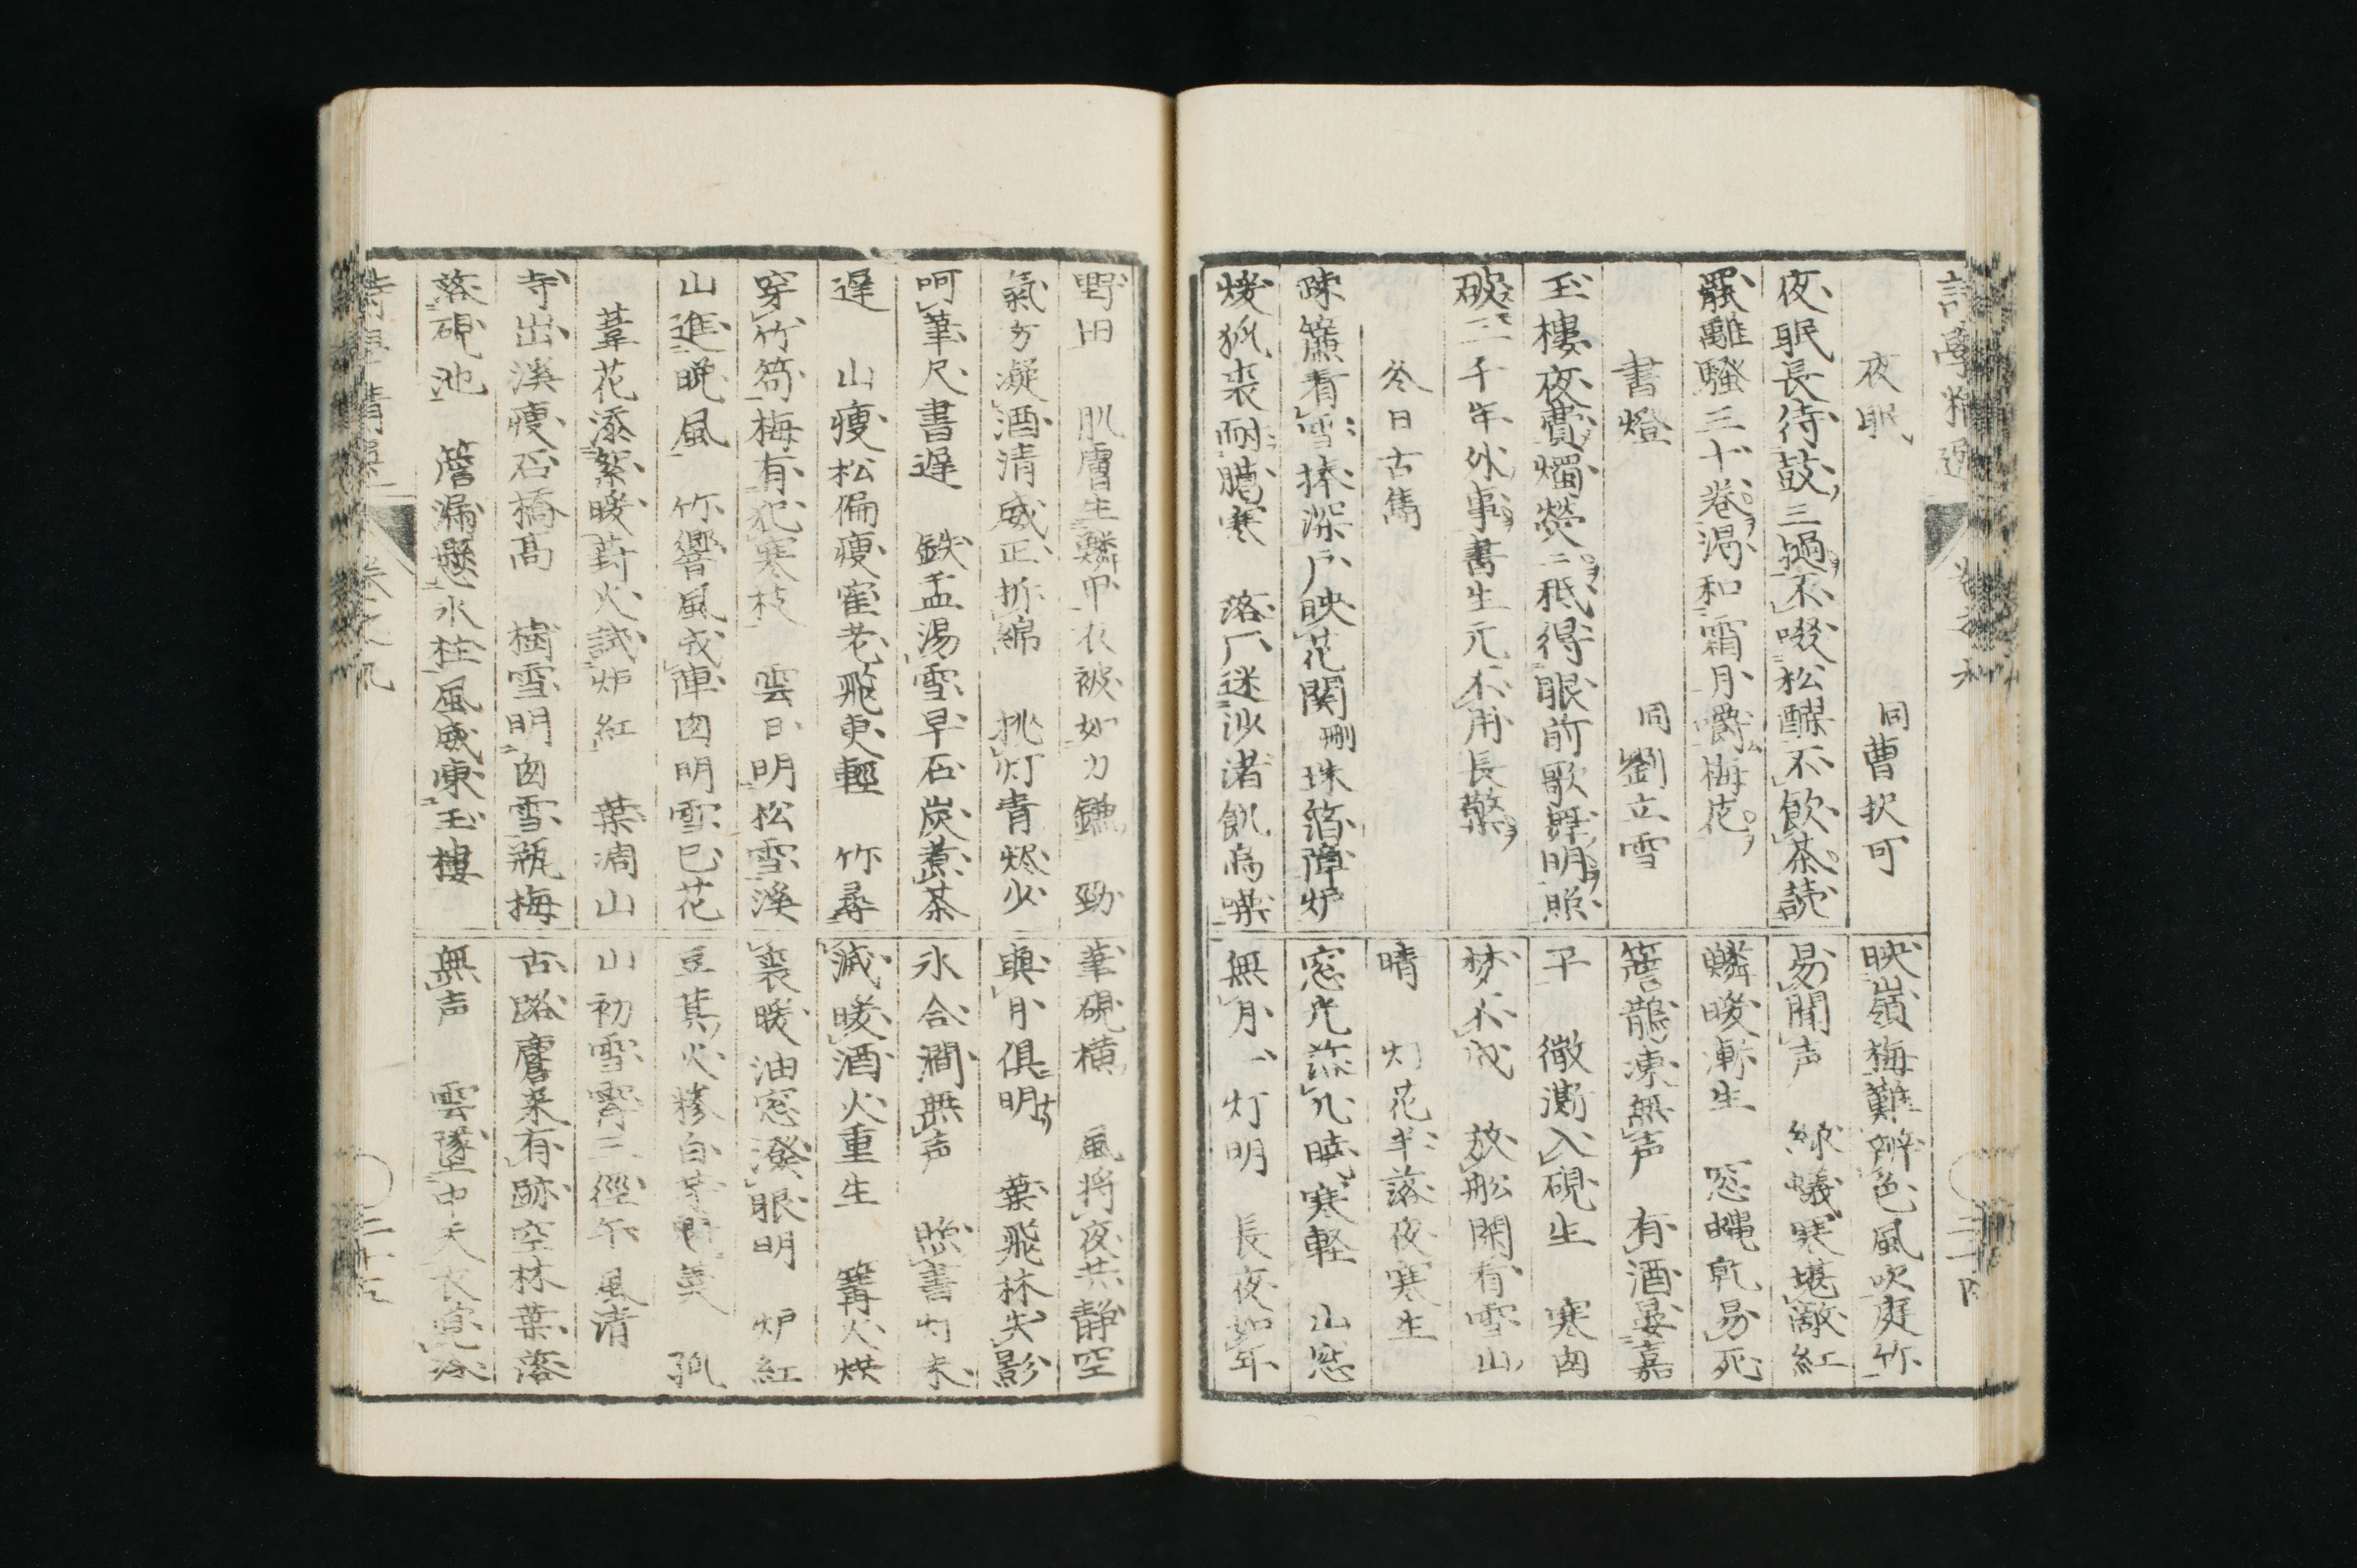 夜眠 同曹択可
夜眠長待鼓三撾不啜松醪不飲茶読
罷離騒三十巻渇和霜月嚼梅花
書燈 同劉立雪
玉樓夜費燭熒〻秖得眼前歌舞明照
破三千年外事書生元不用長檠
冬日古雋
疎簾看雪捧深戸映花関 刪 珠箔障炉
煖狐裘耐臘寒 落厂迷沙渚飢烏噪
野田 肌膚生鱗甲衣被如刀鎌 勁
氣方凝酒清威正折綿 挑灯青燼少
呵筆尺書遅 鉄盂湯雪早石炭煮茶
遅 山痩松偏痩崔老飛更輕 竹尋
穿竹笱梅有犯寒枝 雲日明松雪溪
山進晩風 竹響風成陣囱明雪已花
葦花添絮暖葑火試炉紅 葉凋山
寺出溪痩石橋高 樹雪明囱雪瓶梅
落硯池 簷漏懸氷柱風威凍玉樓
映嶺梅難辨色風吹庭竹
易聞声 緑蟻寒堪敵紅
鱗暖漸生 窓蝿乾易死
簷鵲凍無声 有酒晏嘉
平 微澌入硯生 寒囱
梦不成 放舩閑看雪山
晴 灯花半落夜寒生
寒軽 山窓
無月一灯明 長夜如年
筆硯横 風将夜共静空
與月俱明 葉飛林失影
氷合澗無声 照書灯未
滅暖酒火重生 篝火烘
裘暖油窓潑眼明 炉紅
山初雪霽三徑午風清
古路麕来有跡空林葉落
無声 雲墜中天衣